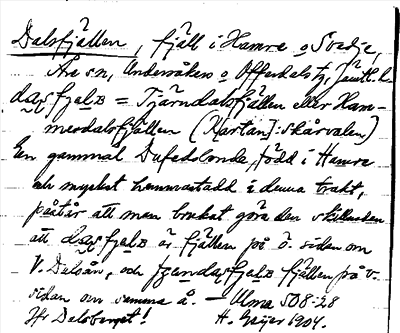 Dalsfjällen, fjäll i Hamre o Svedje,
Åre sn, Undersåkers o Offerdals tg, Jämtl. l.
= Tjärndalsfjällen eller Ham-
merdalsfjällen (Kartan]: Skårvalen)
En gammal Dufedsbonde, född i Hamre
och mycket hemmastadd i denna trakt,
påstår att man brukat göra den skillnaden
att är fjällen på ö. sidan om
V. Dalsån, och fjällen på v.
sidan om samma å. — Ulma 508:28
Jfr Dalsberget! H. Geijer 1904.